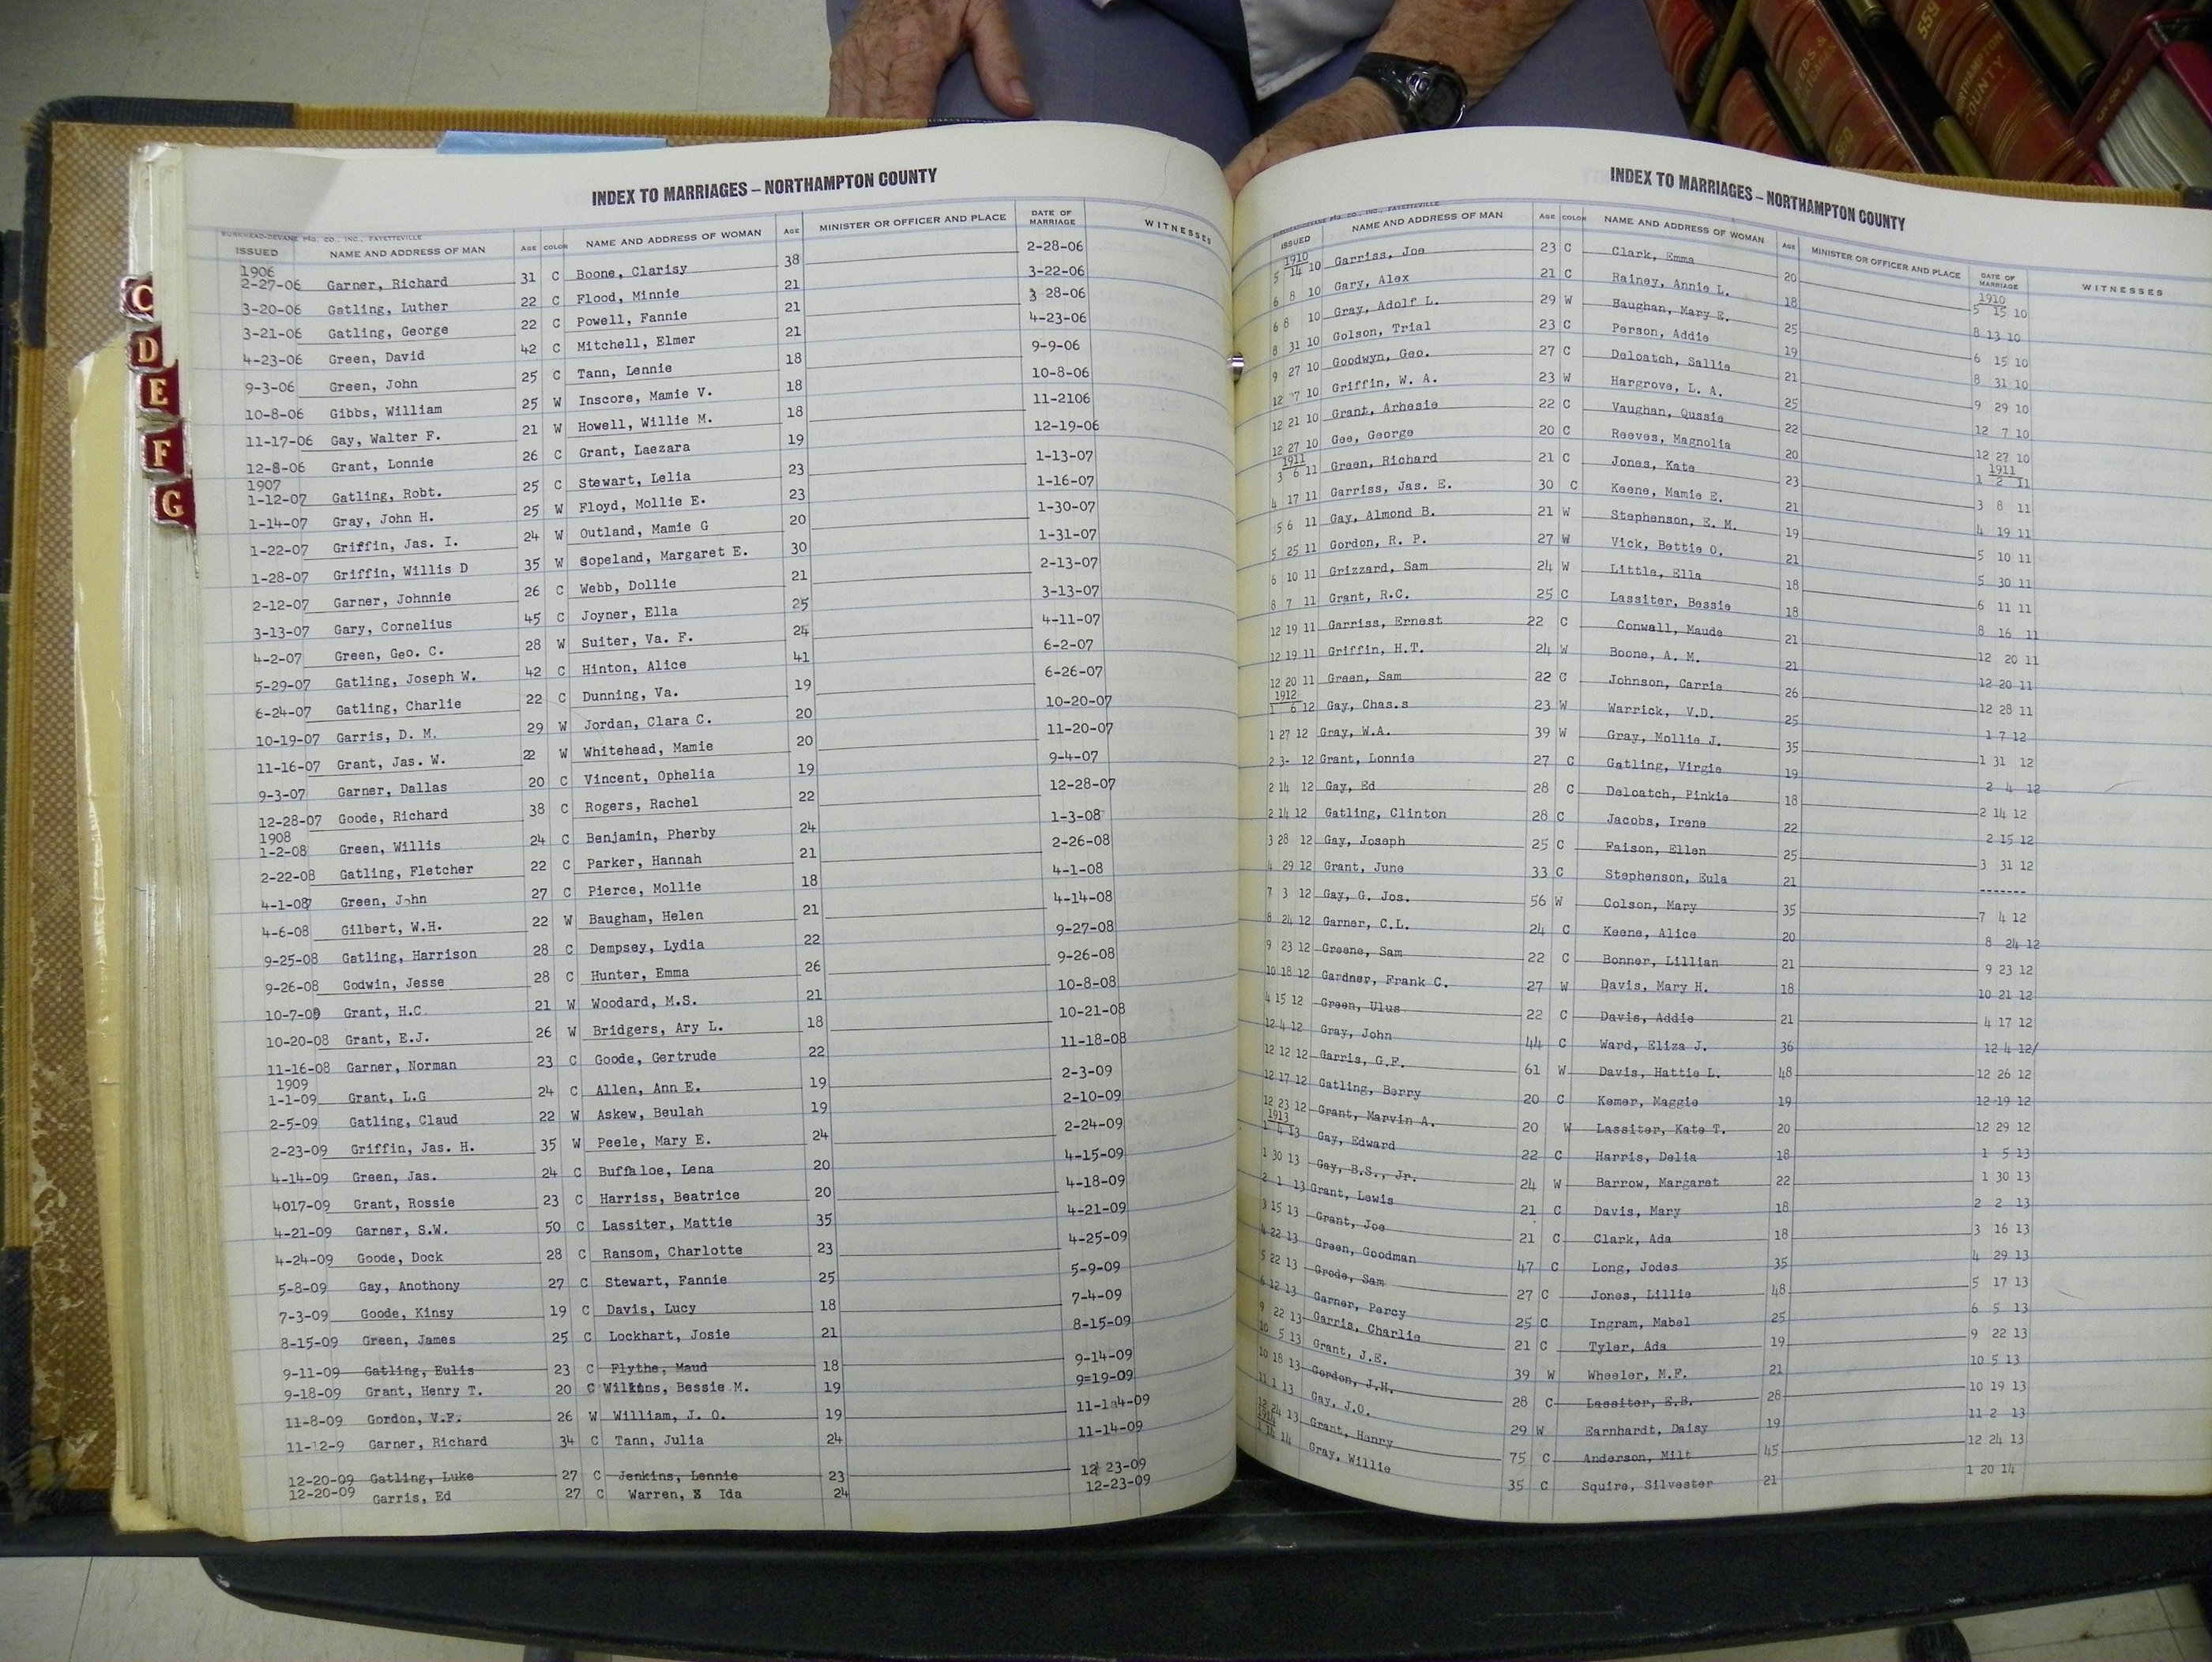 INDEX TO MARRIAGES – NORTHAMPTON COUNTY
BURKHEAD-DEVANE PTG. CO., INC., FAYETTEVILLE
ISSUED NAME AND ADDRESS OF MAN AGE COLOR NAME AND ADDRESS OF WOMAN AGE MINISTER OR OFFICER AND PLACE DATE OF MARRIAGE WITNESSES
1906
2-27-06 Garner, Richard 31 C Boone, Clarisy 38 2-28-06
3-20-06 Gatling, Luther 22 C Flood, Minnie 21 3-22-06
3-21-06 Gatling, George 22 C Powell, Fannie 21 3 28-06
4-23-06 Green, David 42 C Mitchell, Elmer 21 4-23-06
9-3-06 Green, John 25 C Tann, Lennie 18 9-9-06
10-8-06 Gibbs, William 25 W Inscore, Mamie V. 18 10-8-06
11-17-06 Gay, Walter F. 21 W Howell, Willie M. 18 11-2106
12-8-06 Grant, Lonnie 26 C Grant, Laezara 19 12-19-06
1907
1-12-07 Gatling, Robt. 25 C Stewart, Lelia 23 1-13-07
1-14-07 Gray, John H. 25 W Floyd, Mollie E. 23 1-16-07
1-22-07 Griffin, Jas. I. 24 W Outland, Mamie G 20 1-30-07
1-28-07 Griffin, Willis D 35 W Copeland, Margaret E. 30 1-31-07
2-12-07 Garner, Johnnie 26 C Webb, Dollie 21 2-13-07
3-13-07 Gary, Cornelius 45 C Joyner, Ella 25 3-13-07
4-2-07 Green, Geo. C. 28 W Suiter, Va. F. 24 4-11-07
5-29-07 Gatling, Joseph W. 42 C Hinton, Alice 41 6-2-07
6-24-07 Gatling, Charlie 22 C Dunning, Va. 19 6-26-07
10-19-07 Garris, D. M. 29 W Jordan, Clara C. 20 10-20-07
11-16-07 Grant, Jas. W. 22 W Whitehead, Mamie 20 11-20-07
9-3-07 Garner, Dallas 20 C Vincent, Ophelia 19 9-4-07
12-28-07 Goode, Richard 38 C Rogers, Rachel 22 12-28-07
1908
1-2-08 Green, Willis 24 C Benjamin, Pherby 24 1-3-08
2-22-08 Gatling, Fletcher 22 C Parker, Hannah 21 2-26-08
4-1-08 Green, John 27 C Pierce, Mollie 18 4-1-08
4-6-08 Gilbert, W.H. 22 W Baugham, Helen 21 4-14-08
9-25-08 Gatling, Harrison 28 C Dempsey, Lydia 22 9-27-08
9-26-08 Godwin, Jesse 28 C Hunter, Emma 26 9-26-08
10-7-09 Grant, H.C. 21 W Woodard, M.S. 21 10-8-08
10-20-08 Grant, E.J. 26 W Bridgers, Ary L. 18 10-21-08
11-16-08 Garner, Norman 23 C Goode, Gertrude 22 11-18-08
1909
1-1-09 Grant, L.G 24 C Allen, Ann E. 19 2-3-09
2-5-09 Gatling, Claud 22 W Askew, Beulah 19 2-10-09
2-23-09 Griffin, Jas. H. 35 W Peele, Mary E. 24 2-24-09
4-14-09 Green, Jas. 24 C Buffaloe, Lena 20 4-15-09
4017-09 Grant, Rossie 23 C Harriss, Beatrice 20 4-18-09
4-21-09 Garner, S.W. 50 C Lassiter, Mattie 35 4-21-09
4-24-09 Goode, Dock 28 C Ransom, Charlotte 23 4-25-09
5-8-09 Gay, Anothony 27 C Stewart, Fannie 25 5-9-09
7-3-09 Goode, Kinsy 19 C Davis, Lucy 18 7-4-09
8-15-09 Green, James 25 C Lockhart, Josie 21 8-15-09
9-11-09 Gatling, Eulis 23 C Flythe, Maud 18 9-14-09
9-18-09 Grant, Henry T. 20 C Wilkins, Bessie M. 19 9=19-09
11-8-09 Gordon, V.F. 26 W William, J. O. 19 11-1a4-09
11-12-9 Garner, Richard 34 C Tann, Julia 24 11-14-09
12-20-09 Gatling, Luke 27 C Jenkins, Lennie 23 12 23-09
12-20-09 Garris, Ed 27 C Warren, X Ida 24 12-23-09
INDEX TO MARRIAGES – NORTHAMPTON COUNTY
BURKHEAD-DEVANE PTG. CO., INC., FAYETTEVILLE
ISSUED NAME AND ADDRESS OF MAN AGE COLOR NAME AND ADDRESS OF WOMAN AGE MINISTER OR OFFICER AND PLACE DATE OF MARRIAGE WITNESSES
1910 1910
5 14 10 Garriss, Joe 23 C Clark, Emma 20 5 15 10
6 8 10 Gary, Alex 21 C Rainey, Annie L. 18 8 13 10
6 8 10 Gray, Adolf L. 29 W Baughan, Mary E. 25 6 15 10
8 31 10 Golson, Trial 23 C Person, Addie 19 8 31 10
9 27 10 Goodwyn, Geo. 27 C Deloatch, Sallie 21 9 29 10
12 7 10 Griffin, W. A. 23 W Hargrove, L. A. 25 12 7 10
12 21 10 Grant, Arhesie 22 C Vaughan, Qussie 22 12 27 10
1911
12 27 10 Gee, George 20 C Reeves, Magnolia 20 1 2 11
1911
3 6 11 Green, Richard 21 C Jones, Kate 23 3 8 11
4 17 11 Garriss, Jas. E. 30 C Keene, Mamie E. 21 4 19 11
5 6 11 Gay, Almond B. 21 W Stephenson, E. M. 19 5 10 11
5 25 11 Gordon, R. P. 27 W Vick, Bettie O. 21 5 30 11
6 10 11 Grizzard, Sam 24 W Little, Ella 18 6 11 11
8 7 11 Grant, R.C. 25 C Lassiter, Bessie 18 8 16 11
12 19 11 Garriss, Ernest 22 C Conwell, Maude 21 12 20 11
12 19 11 Griffin, H.T. 24 W Boone, A. M. 21 12 20 11
12 20 11 Green, Sam 22 C Johnson, Carrie 26 12 28 11
1912
1 6 12 Gay, Chas.s 23 W Warrick, V.D. 25 1 7 12
1 27 12 Gray, W.A. 39 W Gray, Mollie J. 35 1 31 12
2 3- 12 Grant, Lonnie 27 C Gatling, Virgie 19 2 4 12
2 14 12 Gay, Ed 28 C Deloatch, Pinkie 18 2 14 12
2 14 12 Gatling, Clinton 28 C Jacobs, Irene 22 2 15 12
3 28 12 Gay, Joseph 25 C Faison, Ellen 25 3 31 12
4 29 12 Grant, June 33 C Stephenson, Eula 21 -------
7 3 12 Gay, G. Jos. 56 W Colson, Mary 35 7 4 12
8 24 12 Garner, C.L. 24 C Keene, Alice 20 8 24 12
9 23 12 Greene, Sam 22 C Bonner, Lillian 21 9 23 12
10 18 12 Gardner, Frank C. 27 W Davis, Mary H. 18 10 21 12
4 15 12 Green, Ulus 22 C Davis, Addie 21 4 17 12
12 4 12 Gray, John 44 C Ward, Eliza J. 36 12 4 12/
12 12 12 Garris, G.F. 61 W Davis, Hattie L. 48 12 26 12
12 17 12 Gatling, Berry 20 C Kemer, Maggie 19 12 19 12
12 23 12 Grant, Marvin A. 20 W Lassiter, Kate T. 20 12 29 12
1913
1 4 13 Gay, Edward 22 C Harris, Delia 18 1 5 13
1 30 13 Gay, B.S., Jr. 24 W Barrow, Margaret 22 1 30 13
2 1 13 Grant, Lewis 21 C Davis, Mary 18 2 2 13
3 15 13 Grant, Joe 21 C Clark, Ada 18 3 16 13
4 22 13 Green, Goodman 47 C Long, Jodes 35 4 29 13
5 22 13 Grode, Sam 27 C Jones, Lillie 48 5 17 13
6 12 13 Garner, Percy 25 C Ingram, Mabel 25 6 5 13
9 22 13 Garris, Charlie 21 C Tyler, Ada 19 9 22 13
10 5 13 Grant, J.E. 39 W Wheeler, M.F. 21 10 5 13
10 18 13 Gordon, J.H. 28 C Lassiter, E.B. 28 10 19 13
11 1 13 Gay, J.O. 29 W Earnhardt, Daisy 19 11 2 13
12 24 13 Grant, Henry 75 C Anderson, Milt 45 12 24 13
1914
1 14 Gray, Willie 35 C Squire, Silvester 21 1 20 14
C
D
E
F
G
559
NORTHAMPTON
COUNTY
560